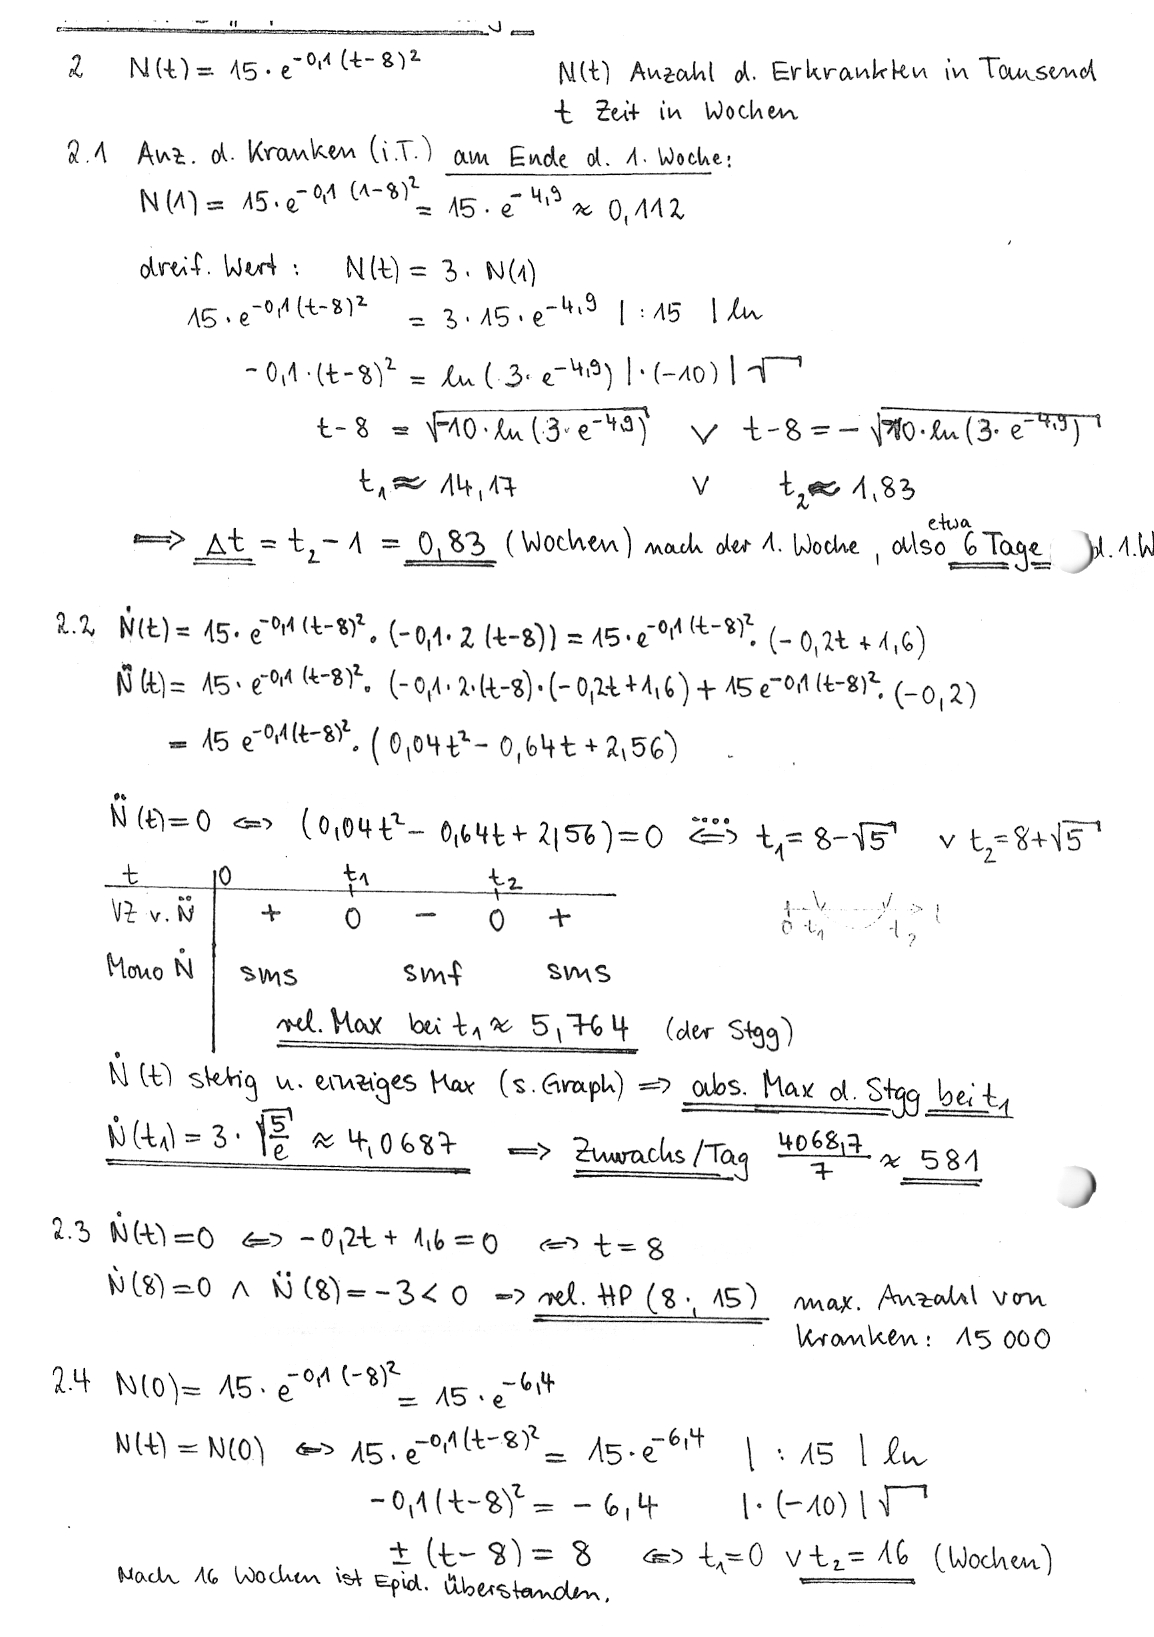 2 N(t) = 15·e^-0,1(t-8)² N(t) Anzahl d. Erkrankten in Tausend
t Zeit in Wochen
2.1 Anz. d. Kranken (i.T.) am Ende d. 1. Woche:
N(1) = 15·e^-0,1(1-8)² = 15·e^-4,9 ≈ 0,112
dreif. Wert: N(t) = 3·N(1)
15·e^-0,1(t-8)² = 3·15·e^-4,9 | :15 | ln
-0,1·(t-8)² = ln(3·e^-4,9) |·(-10) | √
t-8 = √(-10·ln(3·e^-4,9)) ∨ t-8 = -√(-10·ln(3·e^-4,9))
t₁ ≈ 14,17 ∨ t₂ ≈ 1,83
⟹ Δt = t₂ - 1 = 0,83 (Wochen) nach der 1. Woche, also etwa 6 Tage d. 1.W
2.2 Ṅ(t) = 15·e^-0,1(t-8)²·(-0,1·2(t-8)) = 15·e^-0,1(t-8)²·(-0,2t+1,6)
N̈(t) = 15·e^-0,1(t-8)²·(-0,1·2·(t-8)·(-0,2t+1,6) + 15e^-0,1(t-8)²·(-0,2)
= 15e^-0,1(t-8)²·(0,04t² - 0,64t + 2,56)
N̈(t) = 0 ⇔ (0,04t² - 0,64t + 2,56) = 0 ⇔ t₁ = 8-√5 ∨ t₂ = 8+√5
t 0 t₁ t₂
VZ v. N̈ + 0 - 0 + 0 t₁ t₂ t
Mono Ṅ sms smf sms
rel. Max bei t₁ ≈ 5,764 (der Stgg)
Ṅ(t) stetig u. einziges Max (s. Graph) ⟹ abs. Max d. Stgg bei t₁
Ṅ(t₁) = 3·√(5/e) ≈ 4,0687 ⟹ Zuwachs/Tag 4068,7/7 ≈ 581
2.3 Ṅ(t) = 0 ⇔ -0,2t + 1,6 = 0 ⇔ t = 8
Ṅ(8) = 0 ∧ N̈(8) = -3 < 0 ⟹ rel. HP (8; 15) max. Anzahl von
Kranken: 15 000
2.4 N(0) = 15·e^-0,1(-8)² = 15·e^-6,4
N(t) = N(0) ⇔ 15·e^-0,1(t-8)² = 15·e^-6,4 | :15 | ln
-0,1(t-8)² = -6,4 |·(-10) | √
±(t-8) = 8 ⇔ t₁=0 ∨ t₂=16 (Wochen)
Nach 16 Wochen ist Epid. überstanden.